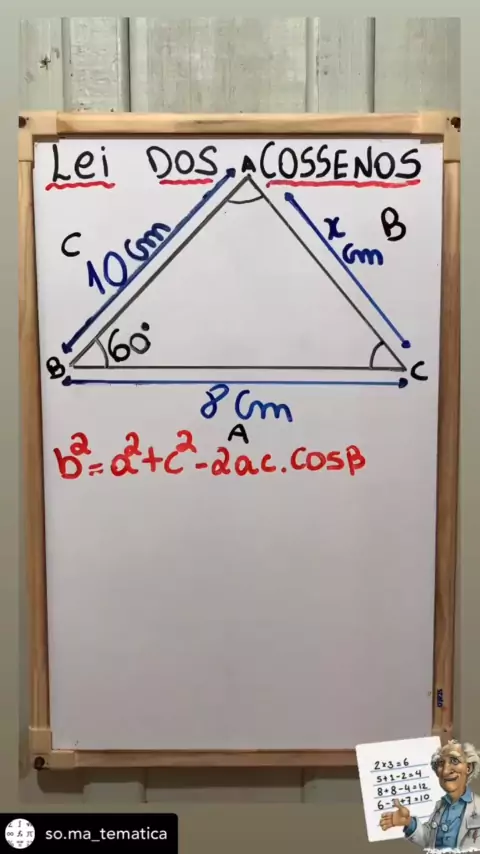 LEI DOS COSSENOS
A
C
10cm
x cm
B
60°
B
C
8 cm
A
b² = a² + c² - 2ac.cosβ
2x3=6
5+1-2=4
8+8-4=12
+7=10
so.ma_tematica